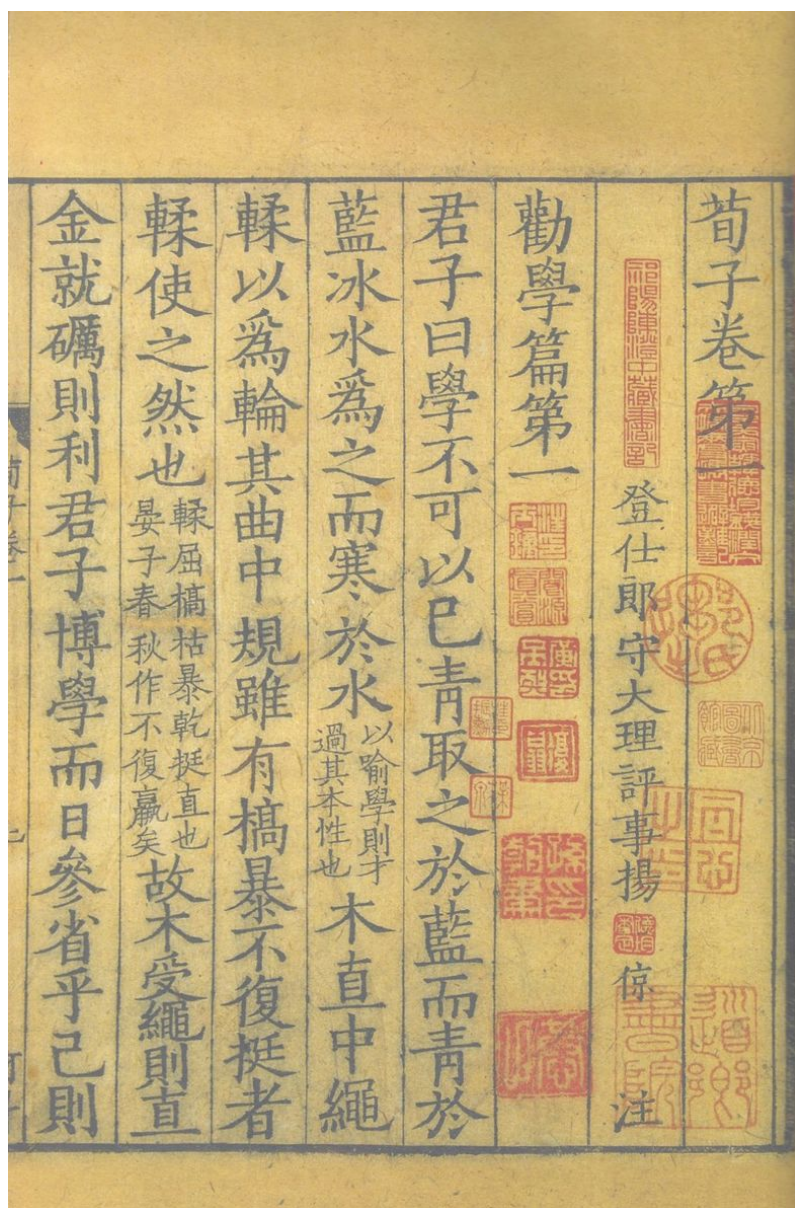 荀子卷第一
登仕郎守大理評事揚倞注
勸學篇第一
君子曰學不可以已青取之於藍而青於
藍冰水爲之而寒於水
以喻學則才
過其本性也
木直中繩
輮以爲輪其曲中規雖有槁暴不復挺者
輮使之然也
輮屈槁枯暴乾挺直也
晏子春秋作不復贏矣
故木受繩則直
金就礪則利君子博學而日參省乎己則
荀子卷一